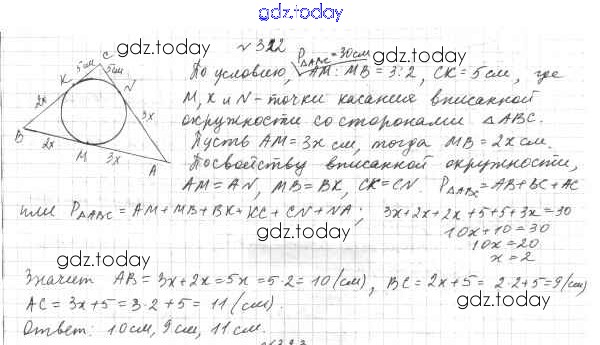 gdz.today
№ 322
P△ABC = 30 см
По условию, AM : MB = 3:2, CK = 5 см, где
M, K и N - точки касания вписанной
окружности со сторонами △ABC.
Пусть AM = 3x см, тогда MB = 2x см.
По свойству вписанной окружности,
AM = AN, MB = BK, CK = CN. P△ABC = AB + BC + AC
или P△ABC = AM + MB + BK + KC + CN + NA; 3x + 2x + 2x + 5 + 5 + 3x = 30
10x + 10 = 30
10x = 20
x = 2
Значит AB = 3x + 2x = 5x = 5·2 = 10 (см), BC = 2x + 5 = 2·2 + 5 = 9 (см)
AC = 3x + 5 = 3·2 + 5 = 11 (см).
Ответ: 10 см, 9 см, 11 см.
5см
C
5см
K
N
2x
3x
B
2x
M
3x
A
gdz.today
gdz.today
gdz.today
gdz.today
gdz.today
gdz.today
gdz.today